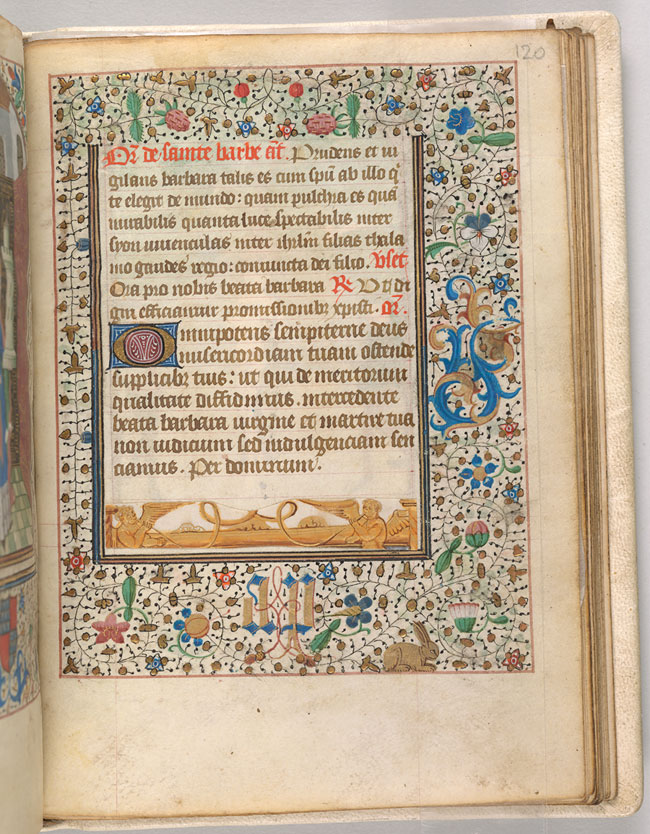 120
Or̃ de sainte barbe añt. Prudens et ui
gilans barbara talis es cum spũ ab illo q̃
te elegit de mundo: quam pulchra es quã
mirabilis quanta luce spectabilis inter
syon iuuenculas inter ihrlm̃ filias thala
mo gaudes regio: coniuncta dei filio. Vset
Ora pro nobis beata barbara R̸ Vt di
gni efficiamur promissionibꝫ xpisti. or̃.
Omnipotens sempiterne deus
misericordiam tuam ostende
supplicibꝫ tuis: ut qui de meritorum
qualitate diffidimus. intercedente
beata barbara uirgine et martire tua
non iudicium sed indulgenciam sen
ciamus. Per dominum.